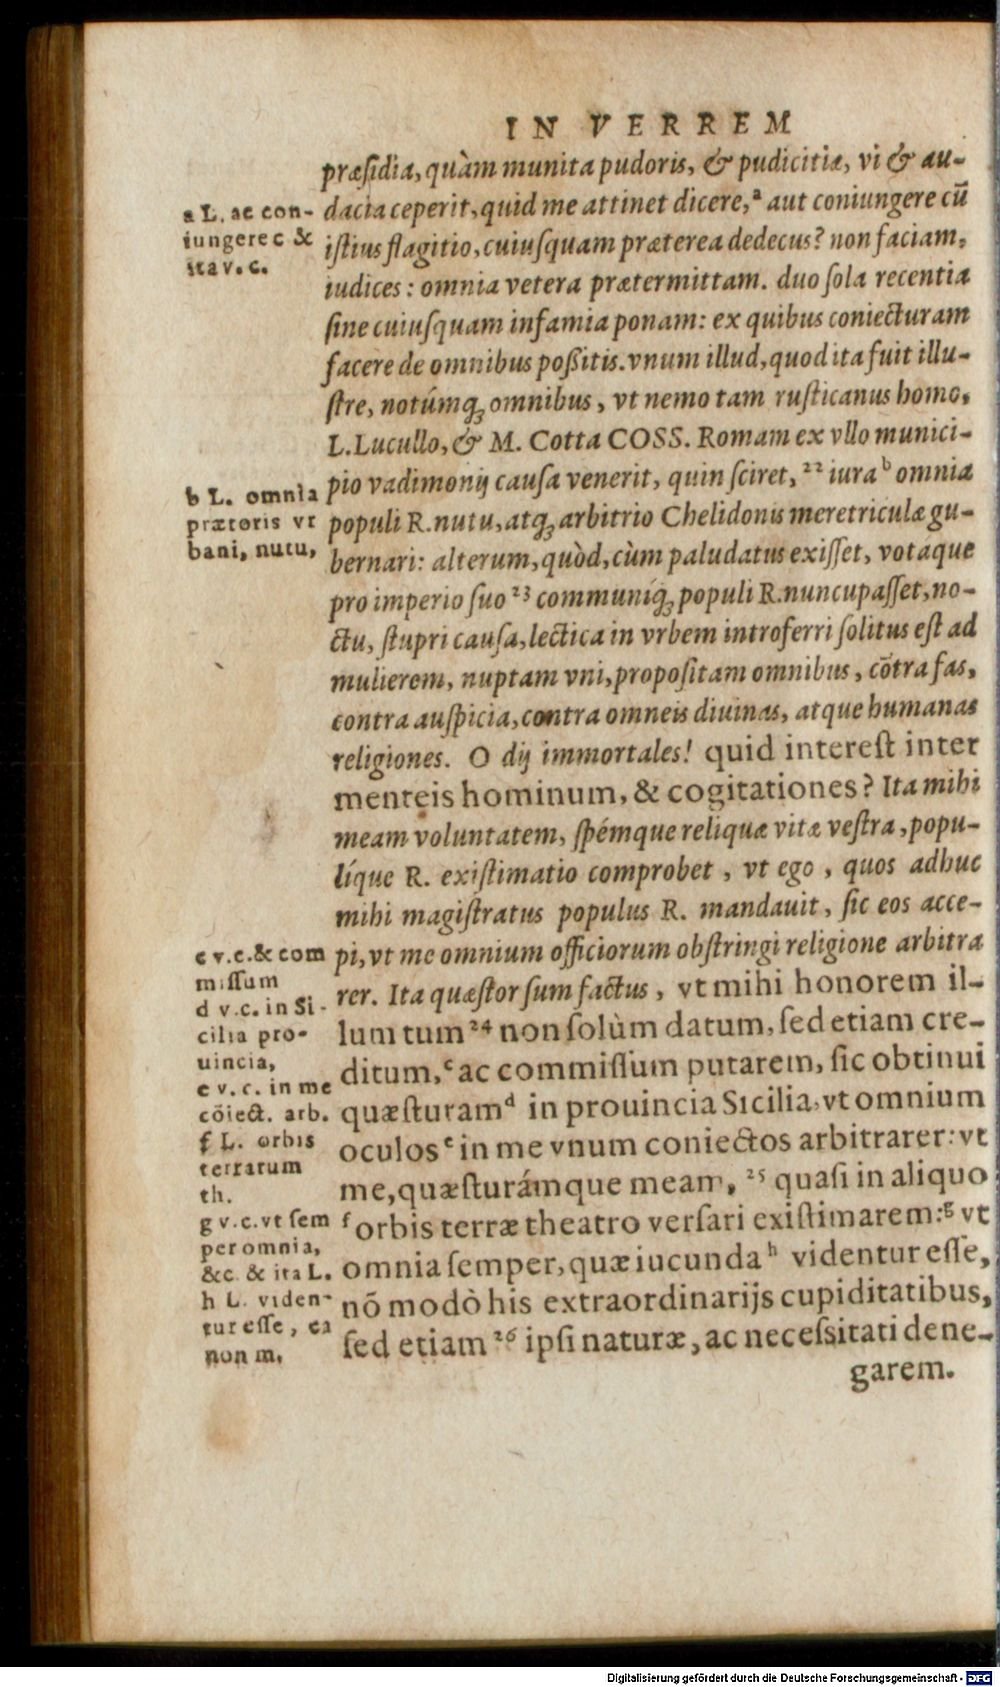 IN VERREM
præsidia, quàm munita pudoris, & pudicitiæ, vi & au-
dacia ceperit, quid me attinet dicere,ᵃ aut coniungere cū
istius flagitio, cuiusquam præterea dedecus? non faciam,
iudices: omnia vetera prætermittam. duo sola recentia
sine cuiusquam infamia ponam: ex quibus coniecturam
facere de omnibus poßitis. vnum illud, quod ita fuit illu-
stre, notúmqꝫ omnibus, vt nemo tam rusticanus homo,
L. Lucullo, & M. Cotta COSS. Romam ex vllo munici-
pio vadimonij causa venerit, quin sciret, ²² iura ᵇ omnia
populi R. nutu, atqꝫ arbitrio Chelidonis meretriculæ gu-
bernari: alterum, quòd, cùm paludatus exisset, votáque
pro imperio suo ²³ communíqꝫ populi R. nuncupasset, no-
ctu, stupri causa, lectica in vrbem introferri solitus est ad
mulierem, nuptam vni, propositam omnibus, cōtra fas,
contra auspicia, contra omneis diuinas, atque humanas
religiones. O dij immortales! quid interest inter
menteis hominum, & cogitationes? Ita mihi
meam voluntatem, spémque reliquæ vitæ vestra, popu-
líque R. existimatio comprobet, vt ego, quos adhuc
mihi magistratus populus R. mandauit, sic eos acce-
pi, vt me omnium officiorum obstringi religione arbitra
rer. Ita quæstor sum factus, vt mihi honorem il-
lum tum ²⁴ non solùm datum, sed etiam cre-
ditum,ᶜ ac commissum putarem, sic obtinui
quæsturam ᵈ in prouincia Sicilia, vt omnium
oculos ᵉ in me vnum coniectos arbitrarer: vt
me, quæsturámque meam, ²⁵ quasi in aliquo
ᶠ orbis terræ theatro versari existimarem:ᵍ vt
omnia semper, quæ iucunda ʰ videntur esse,
nō modò his extraordinarijs cupiditatibus,
sed etiam ²⁶ ipsi naturæ, ac necessitati dene-
garem.
a L. ac con-
iungere c &
ita v. c.
b L. omnia
prætoris vr
bani, nutu,
c v. c. & com
missum
d v. c. in Si-
cilia pro-
uincia,
e v. c. in me
cōiect. arb.
f L. orbis
terrarum
th.
g v. c. vt sem
per omnia,
&c. & ita L.
h L. viden-
tur esse, ea
non m.
Digitalisierung gefördert durch die Deutsche Forschungsgemeinschaft - DFG